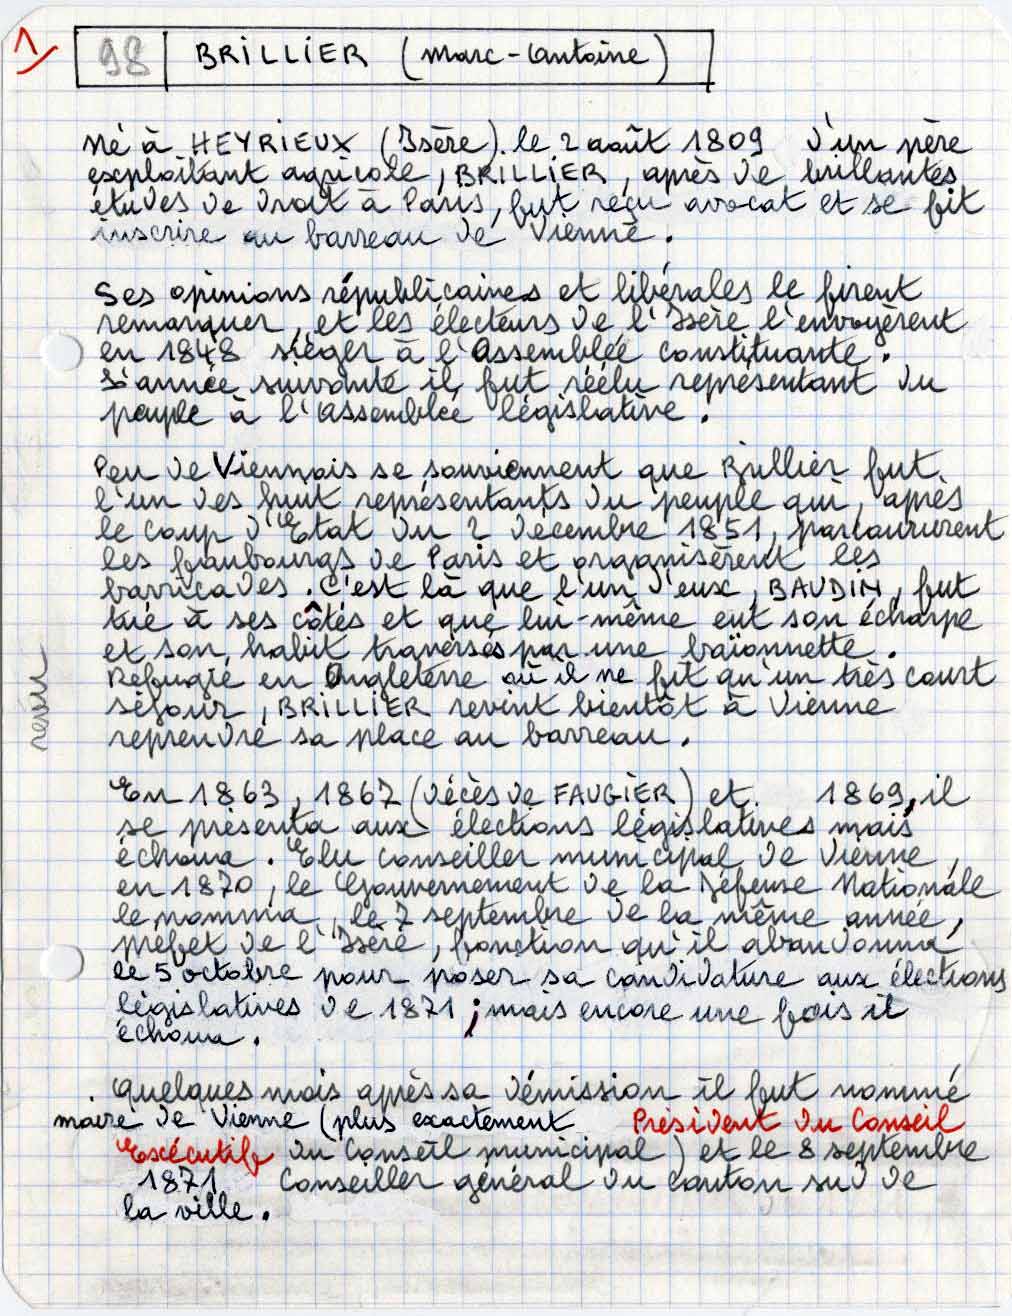 1/
98 BRILLIER (Marc-Antoine)
Né à HEYRIEUX (Isère). le 2 août 1809 d'un père
exploitant agricole, BRILLIER, après de brillantes
études de Droit à Paris, fut reçu avocat et se fit
inscrire au barreau de Vienne.
Ses opinions républicaines et libérales le firent
remarquer, et les électeurs de l'Isère l'envoyèrent
en 1848 siéger à l'Assemblée constituante.
L'année suivante il fut réélu représentant du
peuple à l'Assemblée législative.
Peu de Viennois se souviennent que Brillier fut
l'un des huit représentants du peuple qui, après
le coup d'Etat du 2 décembre 1851, parcoururent
les faubourgs de Paris et organisèrent les
barricades. C'est là que l'un d'eux, BAUDIN, fut
tué à ses côtés et que lui-même eut son écharpe
et son habit traversés par une baïonnette.
Réfugié en Angleterre où il ne fit qu'un très court
séjour, BRILLIER revint bientôt à Vienne
reprendre sa place au barreau.
revu
En 1863, 1867 (décès de FAUGIER) et 1869, il
se présenta aux élections législatives mais
échoua. Elu conseiller municipal de Vienne,
en 1870, le Gouvernement de la Défense Nationale
le nomma, le 7 septembre de la même année,
préfet de l'Isère, fonction qu'il abandonna
le 5 octobre pour poser sa candidature aux élections
législatives de 1871; mais encore une fois il
échoua.
Quelques mois après sa démission il fut nommé
maire de Vienne (plus exactement Président du Conseil
Exécutif du Conseil municipal) et le 8 septembre
1871 Conseiller général du canton sud de
la ville.